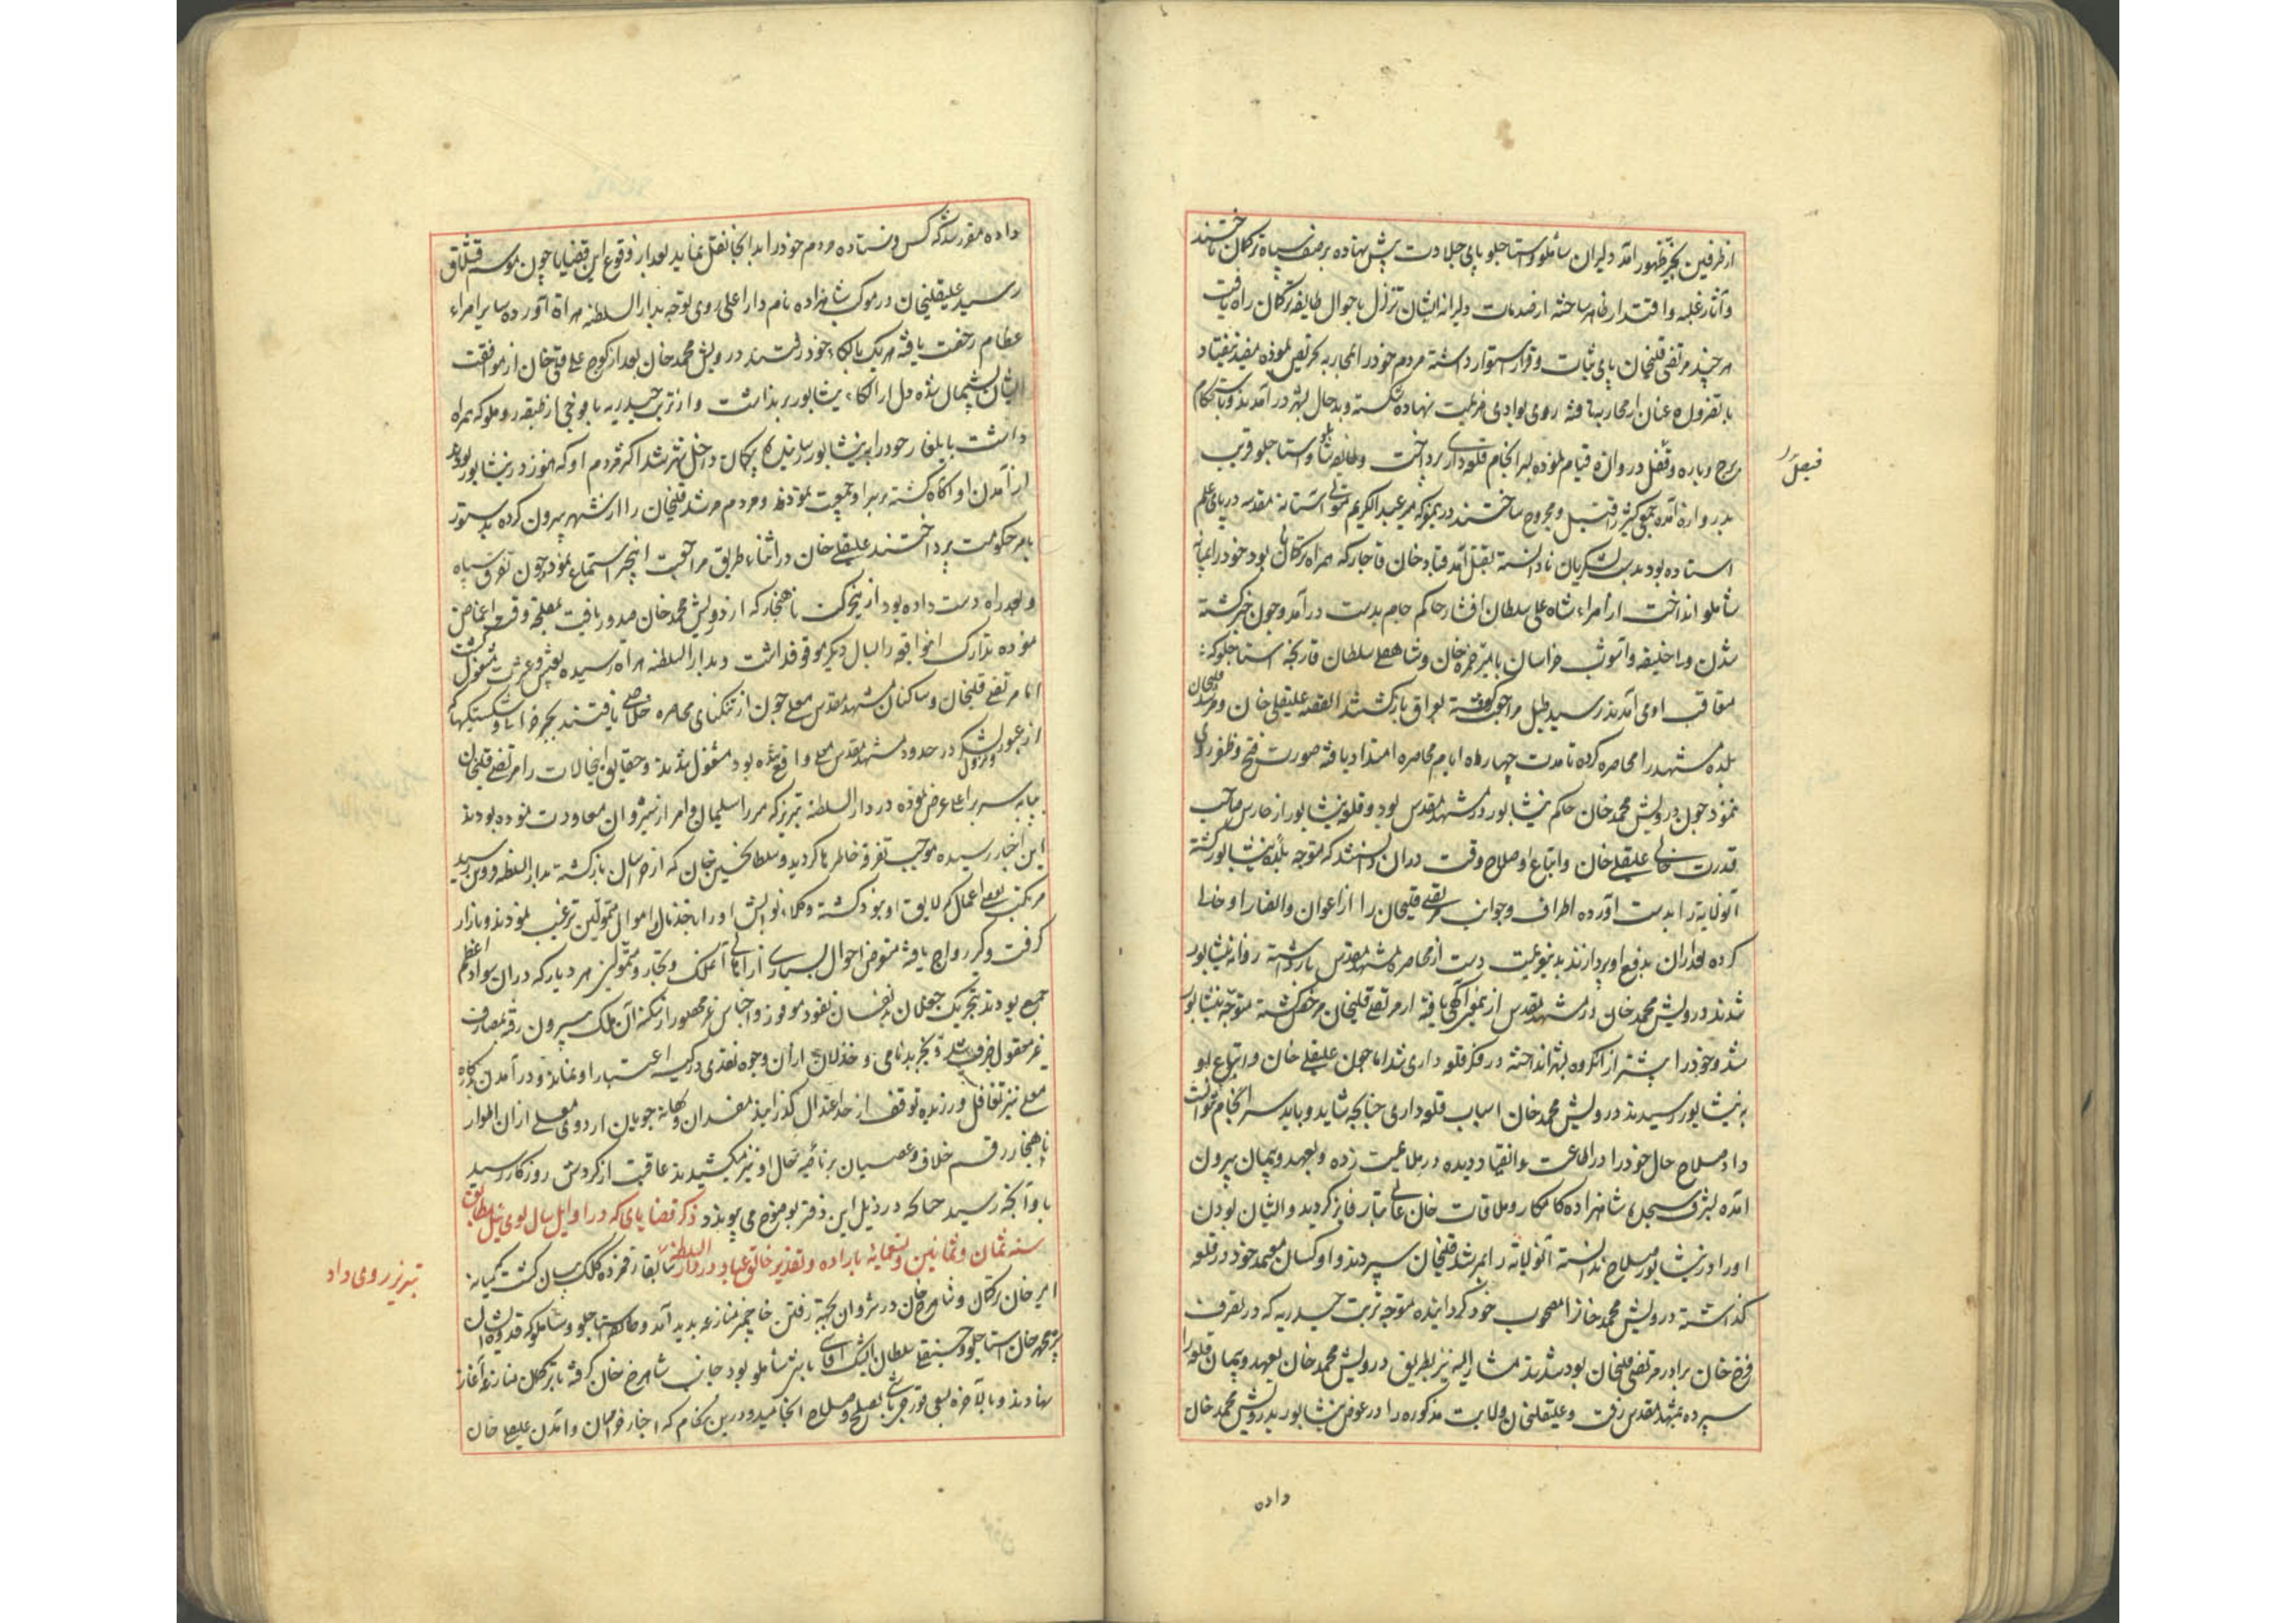 از طرفین بحیّز ظهور آمد دلیران شاملو و استاجلو پای جلادت پیش نهاده بر صف سپاه ترکمان تاختند
و آثار غلبه و اقتدار ظاهر ساخته از صدمات دلیرانه ایشان تزلزل باحوال طایفه ترکمان راه یافت
هر چند مرتضی قلیخان پای ثبات و قرار استوار داشته مردم خود را بمحاربه تحریص نموده مفید نیفتاد
عنان از محاربه تافته روی بوادی هزیمت نهاده شکسته و بدحال بشهر درآمدند و باستحکام
برج و باره و قفل دروازه قیام نموده بسرانجام قلعه داری پرداخت و طایفه شاملو و استاجلو قریب
بدروازه آمده جمعی کثیر را قتیل و مجروح ساختند در معرکه میر عبدالکریم متولی آستانه مقدسه در پای علم
استاده بود بدست لشکریان نادانسته بقتل آمد قباد خان قاجار که همراه ترکمانان بود خود را بمیانه
شاملو انداخت از امراء شاه علی سلطان افشار حاکم جام بدست درآمد و چون خبر کشته
شدن ولد خلیفه و آشوب خراسان بامیر حمزه خان و شاهقلی سلطان قارنجه استاجلو که
متعاقب او می آمدند رسید طبل مراجعت کوفته بعراق بازگشتند القصه علیقلی خان و مرشد قلیخان
بلده مشهد را محاصره کرده تا مدت چهار ماه ایام محاصره امتداد یافته صورت فتح و ظفر روی
ننمود چون درویش محمد خان حاکم نیشابور در مشهد مقدس بود و قلعه نیشابور از حارس صاحب
قدرت خالی علیقلی خان و اتباع او صلاح وقت در آن دانستند که متوجه بلده نیشابور گشته
آنولایة را بدست آورده اطراف و جوانب مرتضی قلیخان را از اعوان و انصار او خالی
کرده بعد از آن بدفع او پردازند بدین عزیمت دست از محاصره مشهد مقدس بازداشته روانه نیشابور
شدند درویش محمد خان در مشهد مقدس ازینمعنی آگهی یافته از مرتضی قلیخان مرخص گشته متوجه نیشابور
شد و خود را پیشتر از آنگروه بشهر انداخته در فکر قلعه داری شد اما چون علیقلی خان و اتباع او
به نیشابور رسیدند درویش محمد خان اسباب قلعه داری چنانچه شاید و باید سرانجام نتوانست
داد صلاح حال خود را در اطاعت و انقیاد دیده در ملایمت زده و بعهد و پیمان بیرون
آمده بشرف سجده شاهزاده کامکار و ملاقات خان عالی تبار فایز گردید و ایشان بودن
او را در نیشابور صلاح ندانسته آنولایة را بمرشد قلیخان سپردند و او کسان معتمد خود در قلعه
گذاشته درویش محمد خان را مصحوب خود گردانیده متوجه تربت حیدریه که در تصرف
فرخ خان برادر مرتضی قلیخان بود شدند مشار الیه نیز بطریق درویش محمد خان بعهد و پیمان قلعه را
سپرده بمشهد مقدس رفت و علیقلی خان ولایت مذکوره را در عوض نیشابور بدرویش محمد خان
داده
داده مقرر شد که کس فرستاده مردم خود را بدانجا نقل نماید بعد از وقوع این قضایا چون موسم قشلاق
رسید علیقلیخان در موکب شاهزاده نامدار اعلی روی توجه بدارالسلطنه هراة آورده سایر امراء
عظام رخصت یافته هر یک بالکاء خود رفتند درویش محمد خان بعد از کوچ علی قلی خان از موافقت
ایشان پشیمان شده دل از الکاء نیشابور برنداشت و از تربت حیدریه با فوجی از طبقه روملو که همراه
داشت بایلغار خود را به نیشابور رسانیده داخل شهر شد اکثر مردم او که هنوز در نیشابور بودند
از آمدن او آگاه گشته بر سر او جمعیت نمودند و مردم مرشد قلیخان را از شهر بیرون کرده بدستور
بامر حکومت پرداختند علیقلی خان در اثناء طریق مراجعت اینخبر استماع نمود چون تفرق سپاه
و بعد راه دست داده بود ازین حرکت ناهنجار که از درویش محمد خان صدور یافت بمصلحة وقت اغماض
نموده تدارک اینواقعه را بسال دیگر موقوف داشت و بدارالسلطنه هراة رسیده بعیش و عشرت مشغول گشت
اما مرتضی قلیخان و ساکنان مشهد مقدس معلی چون از تنگنای محاصره خلاصی یافتند بجبر خرابیها و شکستگیها که
از عبور و نزول لشکر در حدود مشهد مقدس معلی واقع شده بود مشغول شدند و حقایق اینحالات را مرتضی قلیخان
بپایه سریر اعلی عرض نموده در دارالسلطنه تبریز که میرزا سلیمان و امرا از شیروان معاودت نموده بودند
این اخبار رسیده موجب تفرقه خاطرها گردید و سلطان حسین خان که از خراسان بازگشته بدارالسلطنه قزوین رسید
مرتکب بعضی اعمال که لایق او نبود گشته وکلاء نوابش او را باخذ مال و اموال متمولین ترغیب نمودند و بازار
گرفت و گیر رواج یافته متعرض احوال بسیاری از اهالی آنملک و تجار و متمولین هر دیار که در آن سواد اعظم
جمع بودند بتحریک نقود موفور و اجناس غیر محصور از سکنه آن ملک بیرون رفته بمصارف
غیر معقول صرف شد و بجز بدنامی و خذلان از آن وجوه نقدی در کیسه اعتبار او نماند و در آمدن بدرگاه
معلی نیز تغافل ورزیده توقف از حد اعتدال گذرانید مفسدان و بهانه جویان اردوی معلی از آن اطوار
ناهنجار رقم خلاف و عصیان بر ناصیه حال او نیز میکشیدند عاقبت از گردش روزگار رسید
باو آنچه رسید چنانکه در ذیل این دفتر بوضوح می پیوندد ذکر قضایای که در اوایل سال لوی ئیل مطابق
سنه ثمان و ثمانین و تسعمایة باراده و تقدیر خالق عباد در دارالسلطنه سابقا رقم زده کلک بیان گشت که میانه
امیر خان ترکمان و شاهرخ خان در شروان بجهة رفتن منازعه پدید آمد و طایفه استاجلو و شاملو که قدوه ایشان
پیره محمد خان استاجلو و حسینقلی سلطان ایشک آقاسی باشی شاملو بود جانب شاهرخ خان گرفته با ترکمان منازعه آغاز
نهادند و بالآخره بسعی قورچی باشی بصلح و صلاح انجامید و درین هنگام که اخبار خراسان و آمدن علیقلی خان
تبریز روی داد